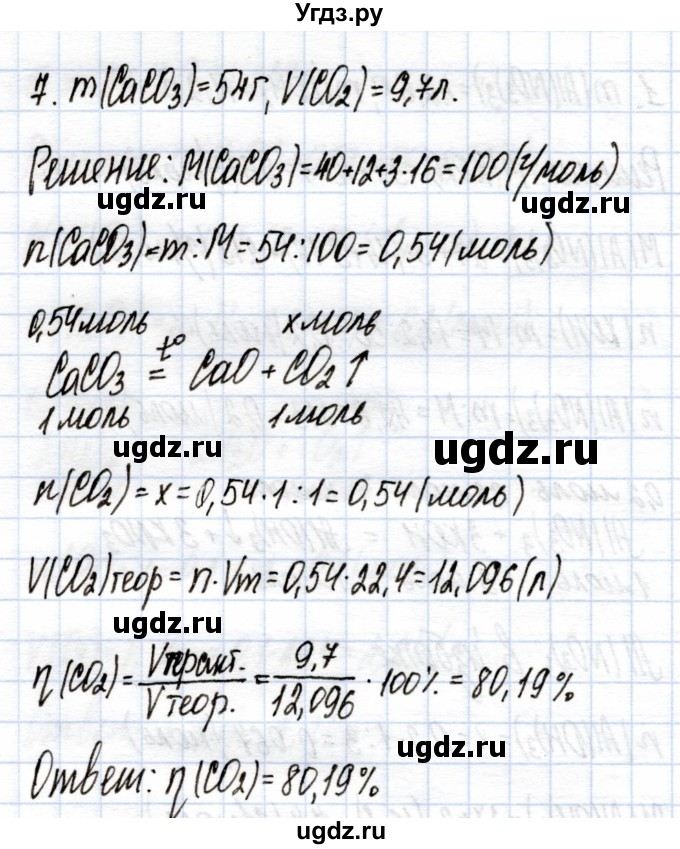 Угдз.ру
7. m(CaCO₃)=54г, V(CO₂)=9,7л.
Решение: M(CaCO₃)=40+12+3·16=100(г/моль)
ugdz.ru ugdz.ru
n(CaCO₃)=m:M=54:100=0,54(моль)
0,54моль x моль
CaCO₃ =t° CaO+CO₂↑
1 моль 1 моль
ugdz.ru ugdz.ru
n(CO₂)=x=0,54·1:1=0,54(моль)
V(CO₂)теор=n·Vm=0,54·22,4=12,096(л)
ugdz.ru ugdz.ru
η(CO₂)=Vпракт./Vтеор.=9,7/12,096·100%=80,19%
ugdz.ru ugdz.ru
Ответ: η(CO₂)=80,19%
ugdz.ru